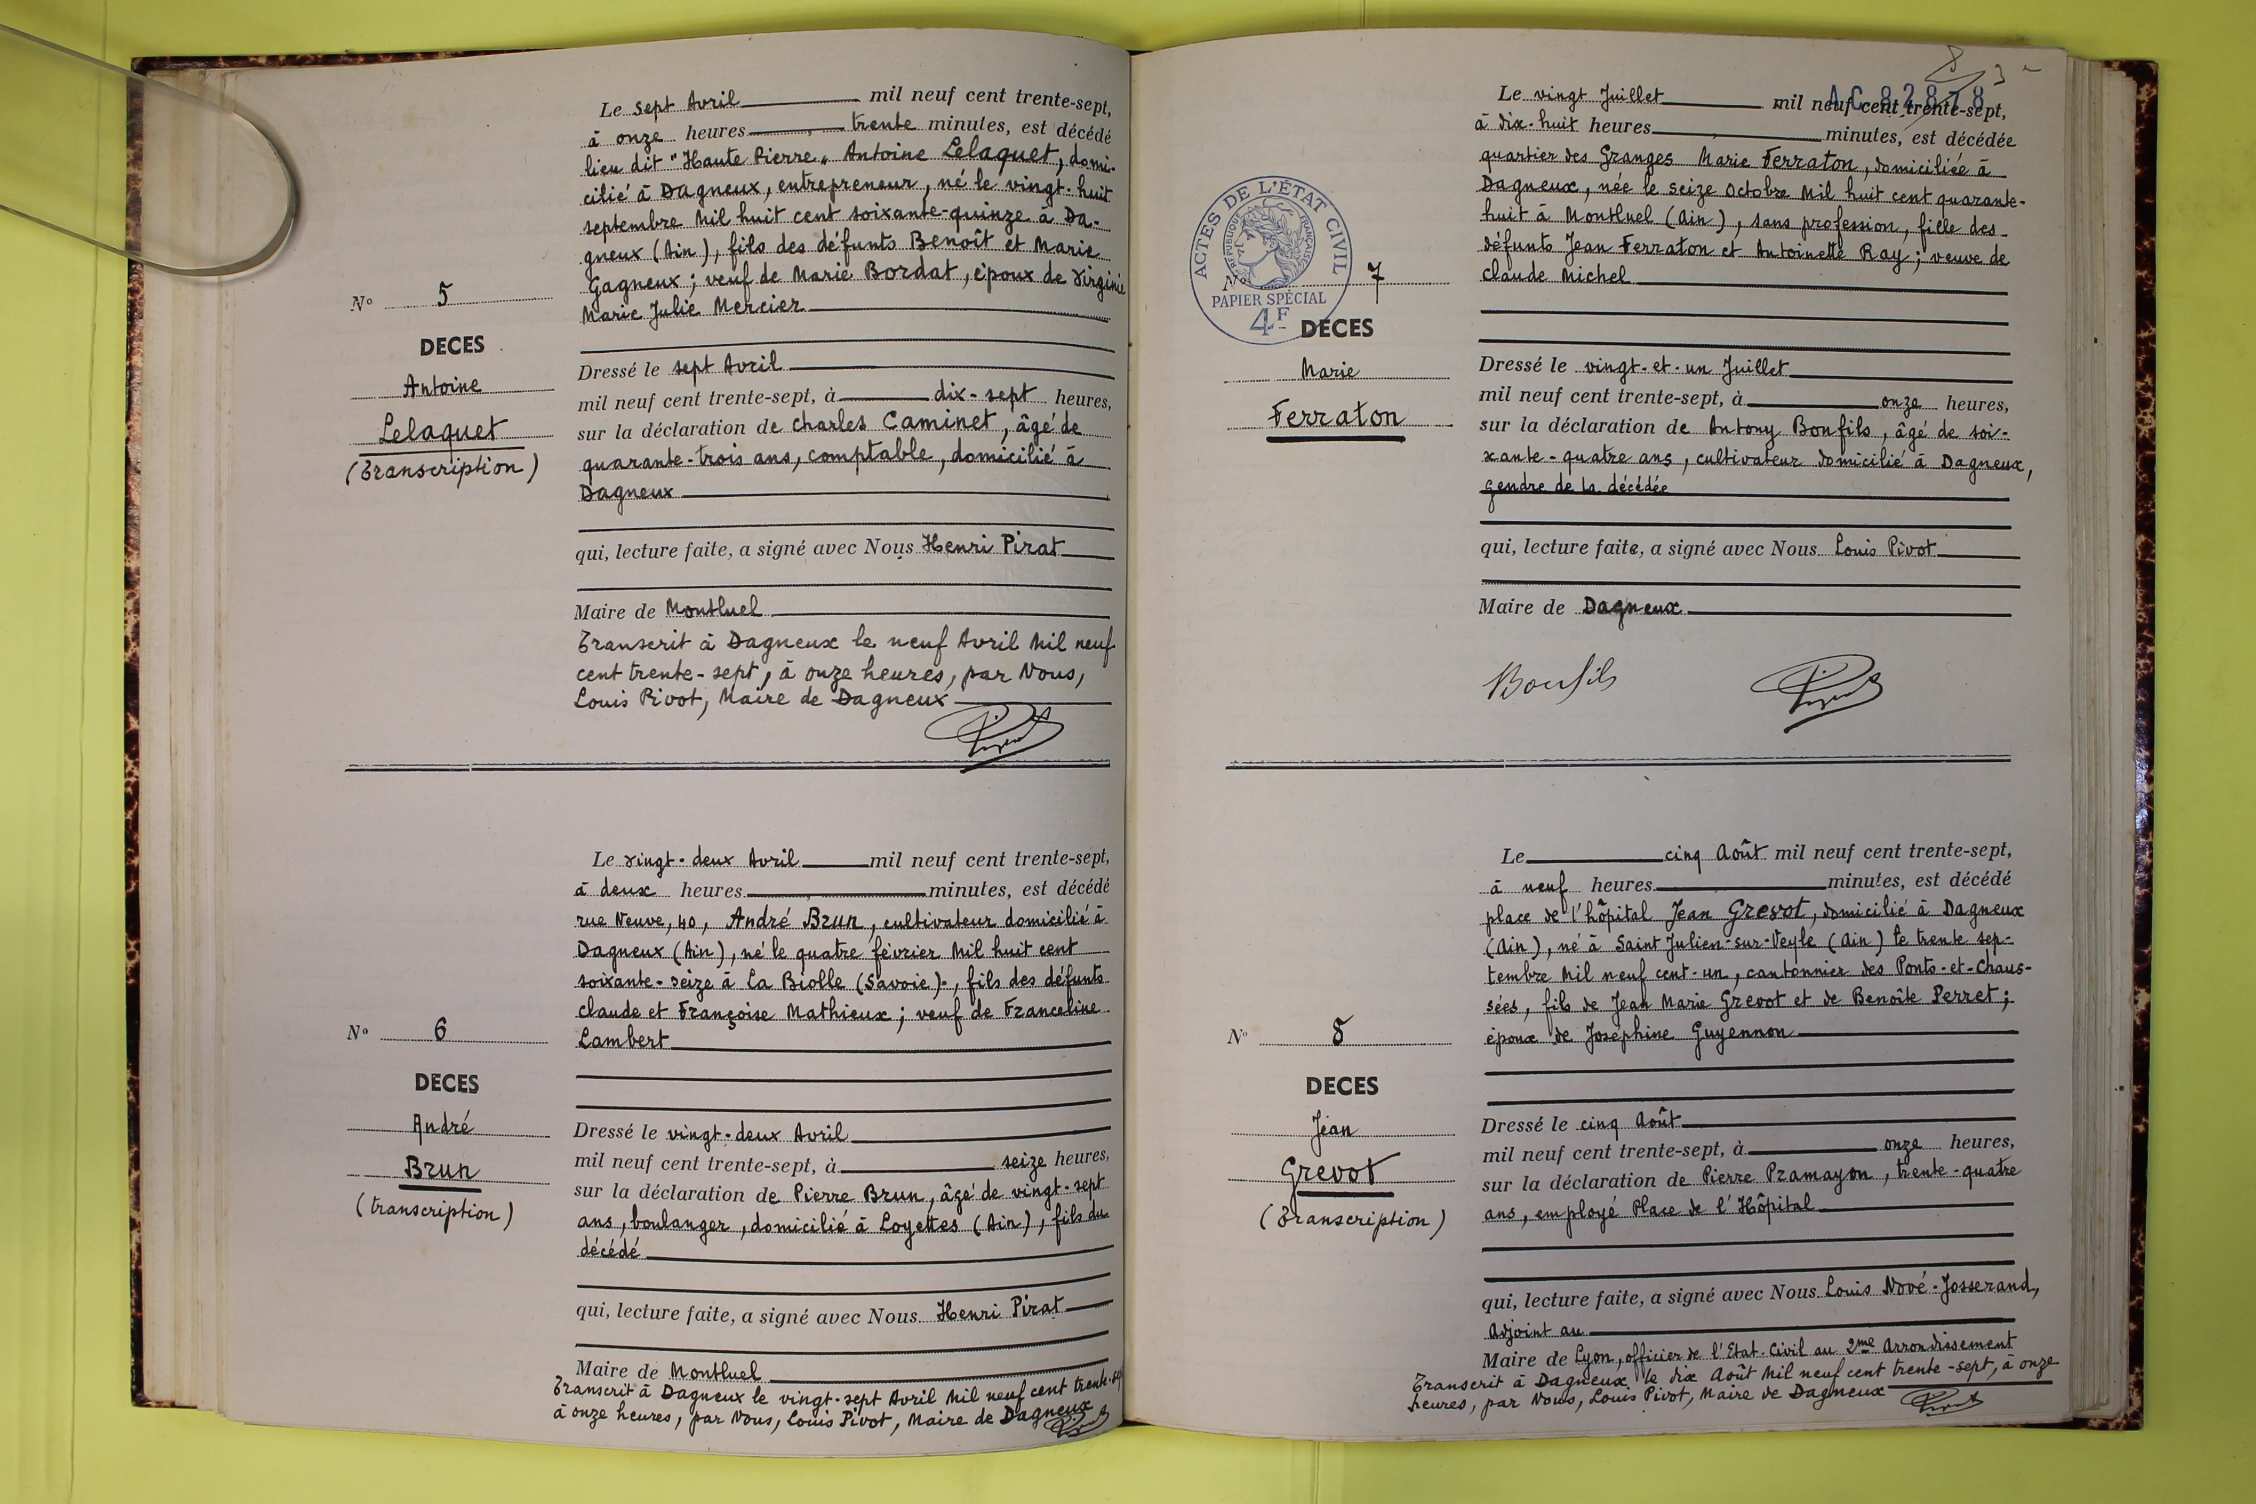 Le sept Avril mil neuf cent trente-sept,
à onze heures trente minutes, est décédé
lieu dit "Haute Pierre" Antoine Lelaquet, domi-
cilié à Dagneux, entrepreneur, né le vingt-huit
septembre Mil huit cent soixante-quinze à Da-
gneux (Ain), fils des défunts Benoît et Marie
Gagneux; veuf de Marie Bordat, époux de Virginie
Marie Julie Mercier
N° 5
DECES
Antoine
Lelaquet
(Transcription)
Dressé le sept Avril
mil neuf cent trente-sept, à dix-sept heures,
sur la déclaration de Charles Caminet, âgé de
quarante-trois ans, comptable, domicilié à
Dagneux
qui, lecture faite, a signé avec Nous Henri Pirat
Maire de Montluel
Transcrit à Dagneux le neuf Avril Mil neuf
cent trente-sept, à onze heures, par Nous,
Louis Pivot, Maire de Dagneux
Pivot
Le vingt-deux Avril mil neuf cent trente-sept,
à deux heures minutes, est décédé
rue Neuve, 40, André Brun, cultivateur domicilié à
Dagneux (Ain), né le quatre février Mil huit cent
soixante-seize à La Biolle (Savoie), fils des défunts
Claude et Françoise Mathieux; veuf de Franceline
Lambert
N° 6
DECES
André
Brun
(transcription)
Dressé le vingt-deux Avril
mil neuf cent trente-sept, à seize heures,
sur la déclaration de Pierre Brun, âgé de vingt-sept
ans, boulanger, domicilié à Loyettes (Ain), fils du
décédé
qui, lecture faite, a signé avec Nous Henri Pirat
Maire de Montluel
Transcrit à Dagneux le vingt-sept Avril Mil neuf cent trente-sept
à onze heures, par Nous, Louis Pivot, Maire de Dagneux
Pivot
AC 82878
Le vingt Juillet mil neuf cent trente-sept,
à dix-huit heures minutes, est décédée
quartier des Granges Marie Ferraton, domiciliée à
Dagneux, née le seize Octobre Mil huit cent quarante-
huit à Montluel (Ain), sans profession, fille des
défunts Jean Ferraton et Antoinette Ray; veuve de
Claude Michel
ACTES DE L'ÉTAT CIVIL
RÉPUBLIQUE FRANÇAISE
PAPIER SPÉCIAL
4F
N° 7
DECES
Marie
Ferraton
Dressé le vingt-et-un Juillet
mil neuf cent trente-sept, à onze heures,
sur la déclaration de Antony Bonfils, âgé de soi-
xante-quatre ans, cultivateur domicilié à Dagneux,
gendre de la décédée
qui, lecture faite, a signé avec Nous Louis Pivot
Maire de Dagneux
Bonfils Pivot
Le cinq Août mil neuf cent trente-sept,
à neuf heures minutes, est décédé
place de l'hôpital Jean Grevot, domicilié à Dagneux
(Ain), né à Saint Julien-sur-Veyle (Ain) le trente sep-
tembre Mil neuf cent-un, cantonnier des Ponts-et-Chaus-
sées, fils de Jean Marie Grevot et de Benoîte Perret;
époux de Joséphine Guyennon
N° 8
DECES
Jean
Grevot
(Transcription)
Dressé le cinq Août
mil neuf cent trente-sept, à onze heures,
sur la déclaration de Pierre Pramayon, trente-quatre
ans, employé Place de l'Hôpital
qui, lecture faite, a signé avec Nous Louis Nové-Josserand,
Adjoint au
Maire de Lyon, officier de l'Etat-Civil au 2me Arrondissement
Transcrit à Dagneux le dix Août Mil neuf cent trente-sept, à onze
heures, par Nous, Louis Pivot, Maire de Dagneux
Pivot